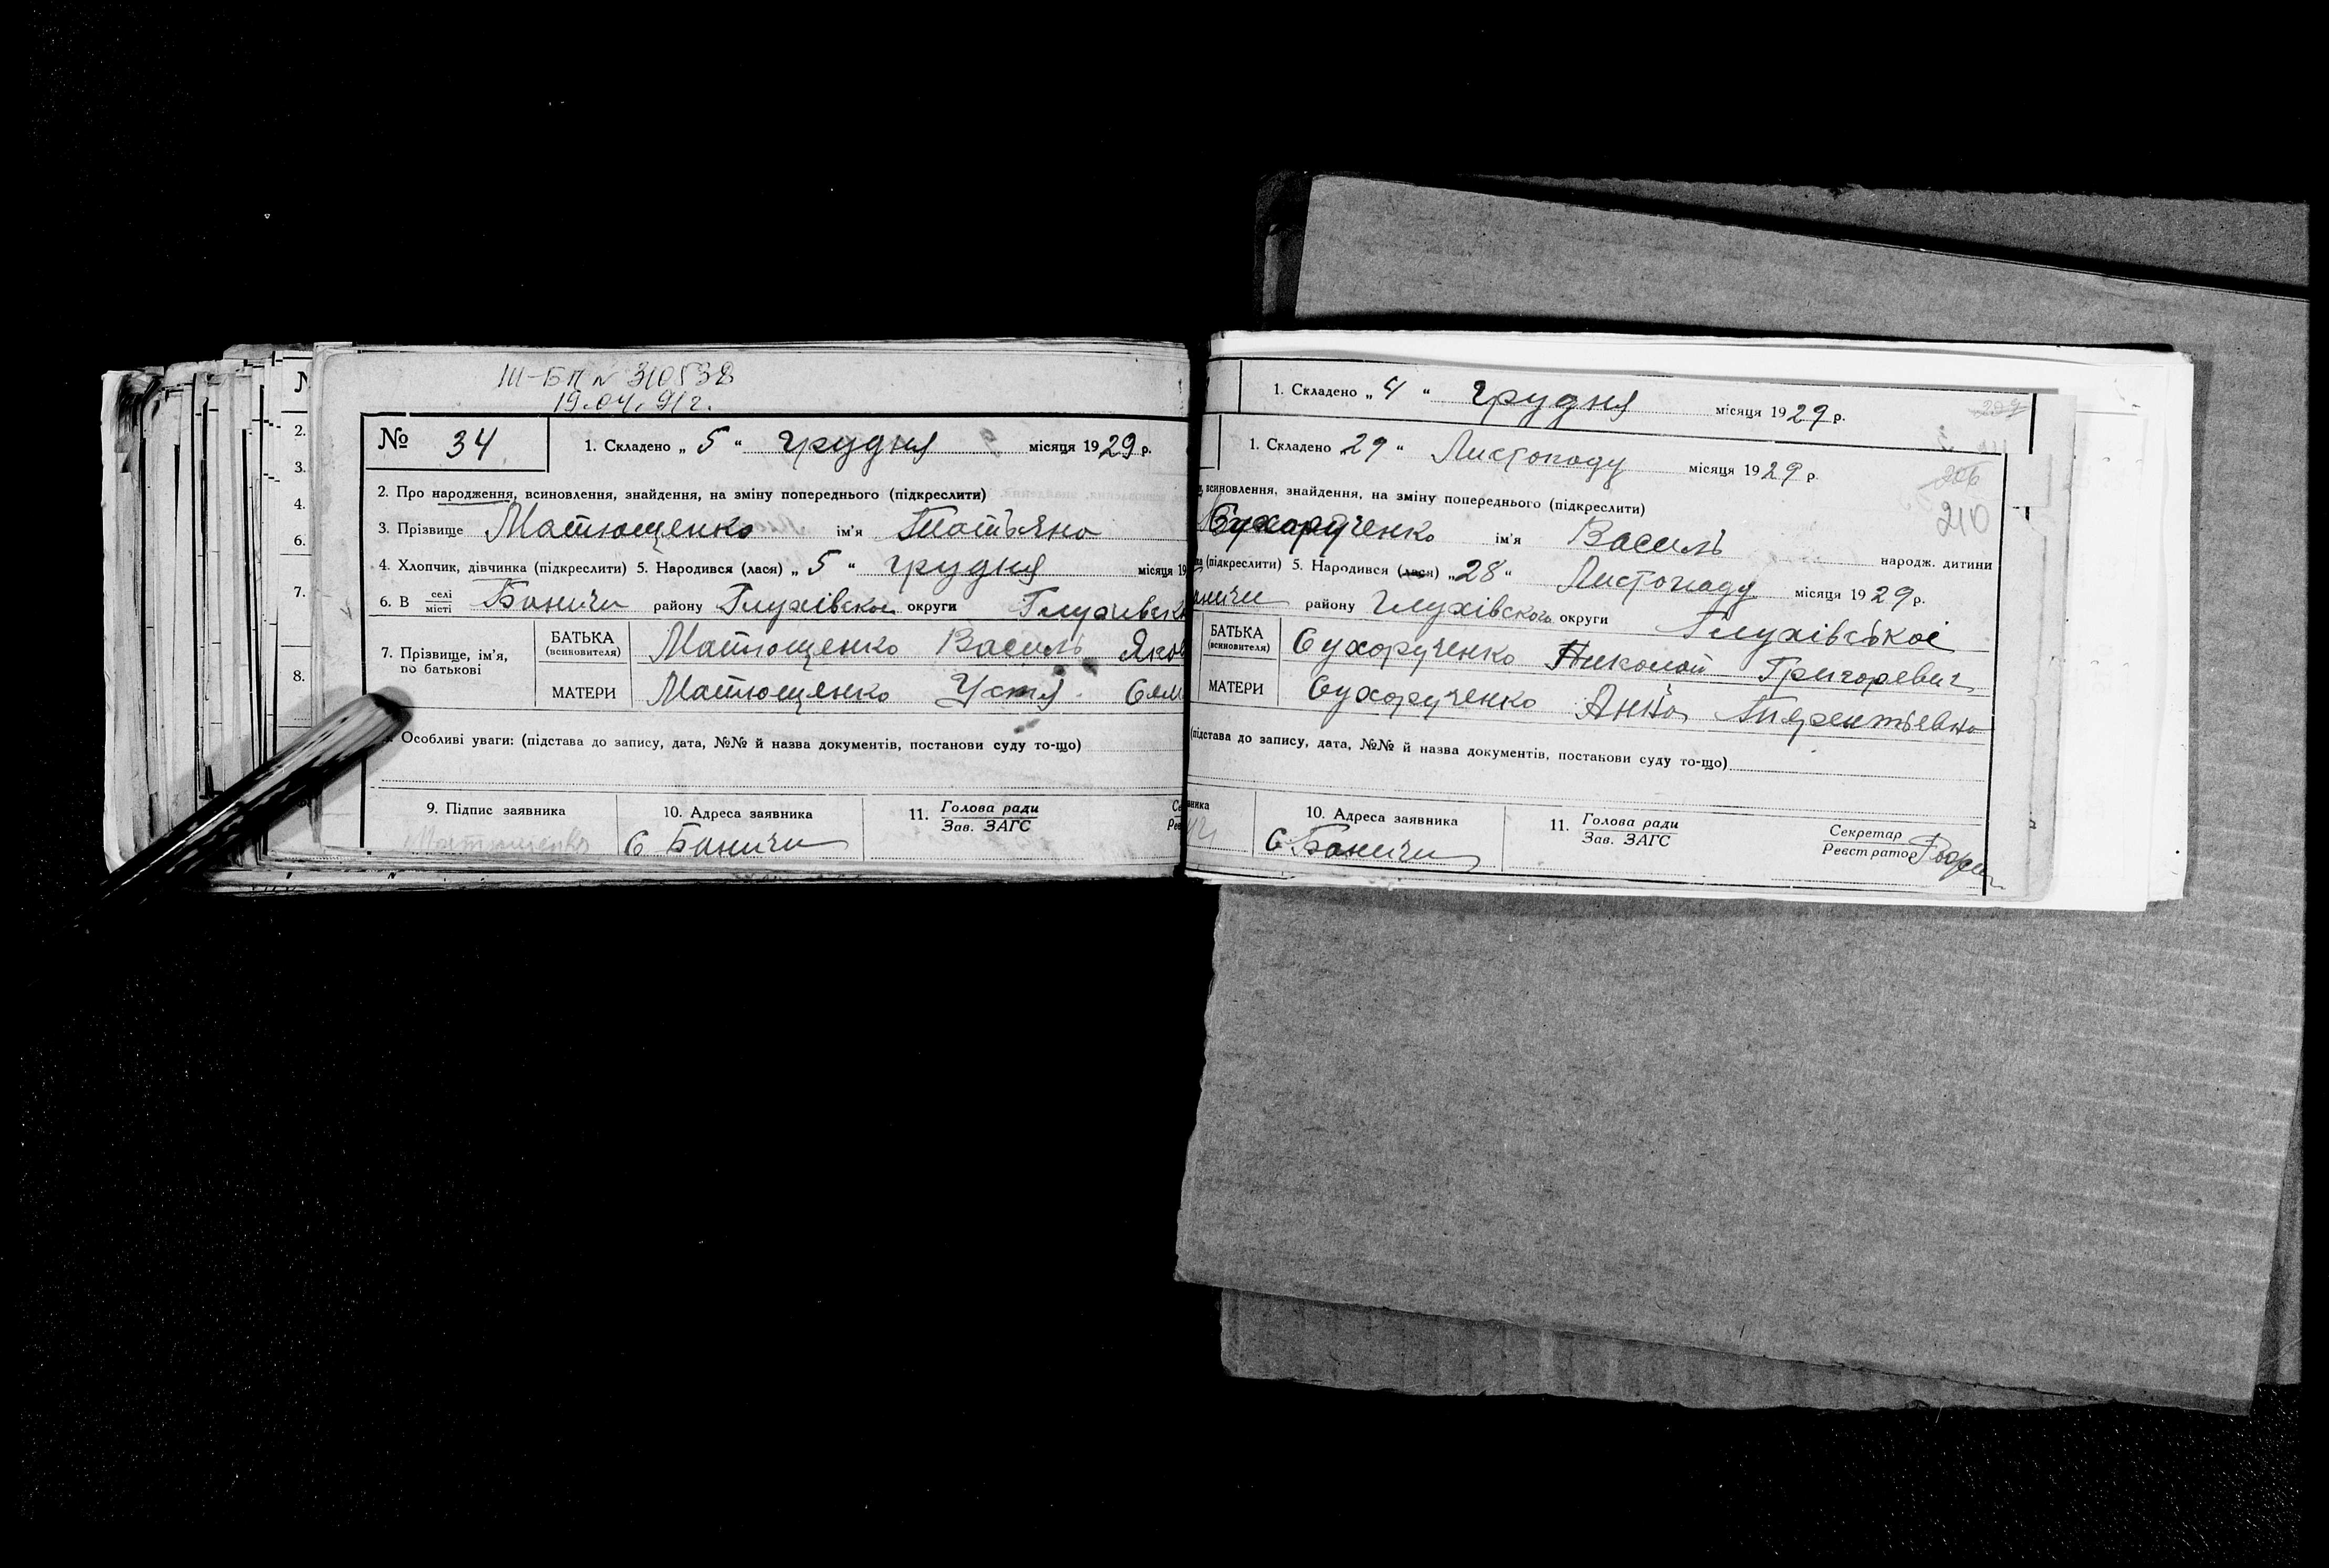 III-БК № 310538
19.04.91г.
№ 34 1. Складено „ 5 “ грудня місяця 1929 р.
2. Про народження, всиновлення, знайдення, на зміну попереднього (підкреслити)
3. Прізвище Матющенко ім'я Татьяна
4. Хлопчик, дівчинка (підкреслити) 5. Народився (лася) „ 5 “ грудня місяця 19
6. В селі місті Баничи району Глухівськой округи Глухивськ
7. Прізвище, ім'я, по батькові
БАТЬКА (всиновителя) Матющенко Василь Яков
МАТЕРИ Матющенко Устя Сем
Особливі уваги: (підстава до запису, дата, №№ й назва документів, постанови суду то-що)
9. Підпис заявника 10. Адреса заявника 11. Голова ради Зав. ЗАГС
Матющенко С Баничи
2.
3.
4.
6.
7.
8.
1. Складено „ 4 “ грудня місяця 1929 р.
1. Складено 29 “ Листопаду місяця 1929 р.
206
210
всиновлення, знайдення, на зміну попереднього (підкреслити)
Сухорученко ім'я Василь народж. дитини
(підкреслити) 5. Народився (лася) „28“ Листопаду місяця 1929 р.
аничи району Глухівского округи Глухівської
БАТЬКА (всиновителя) Сухорученко Николай Григоревич
МАТЕРИ Сухорученко Анна Терентьевна
(підстава до запису, дата, №№ й назва документів, постанови суду то-що)
вника 10. Адреса заявника 11. Голова ради Зав. ЗАГС Секретар Реєстратор
С Баничи